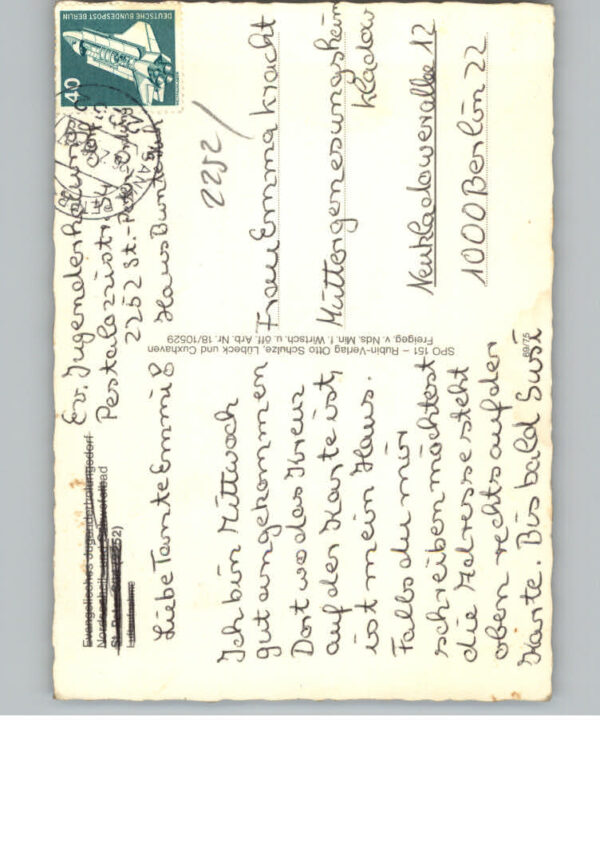 Evangelisches Jugenderholungsdorf
Nordseeheil- und Schwefelbad
St. Peter-Ording (2252)
Ev. Jugenderholungsdorf
Pestalozzistr. 54
2252 St.-Peter-Ording
Haus Bunte Kuh
DEUTSCHE BUNDESPOST BERLIN
40
Liebe Tante Emmi!
Ich bin Mittwoch
gut angekommen
Dort wo das Kreuz
auf der Karte ist,
ist mein Haus.
Falls du mir
schreiben möchtest
die Adresse steht
oben rechts auf der
Karte. Bis bald Susi
SPO 151 – Rubin-Verlag Otto Schulze, Lübeck und Cuxhaven
Freigeg. v. Nds. Min. f. Wirtsch. u. öff. Arb. Nr. 18/10529
69/75
2252/
Frau Emma Kracht
Müttergenesungsheim
Kladow
Neukladowerallee 12
1000 Berlin 22